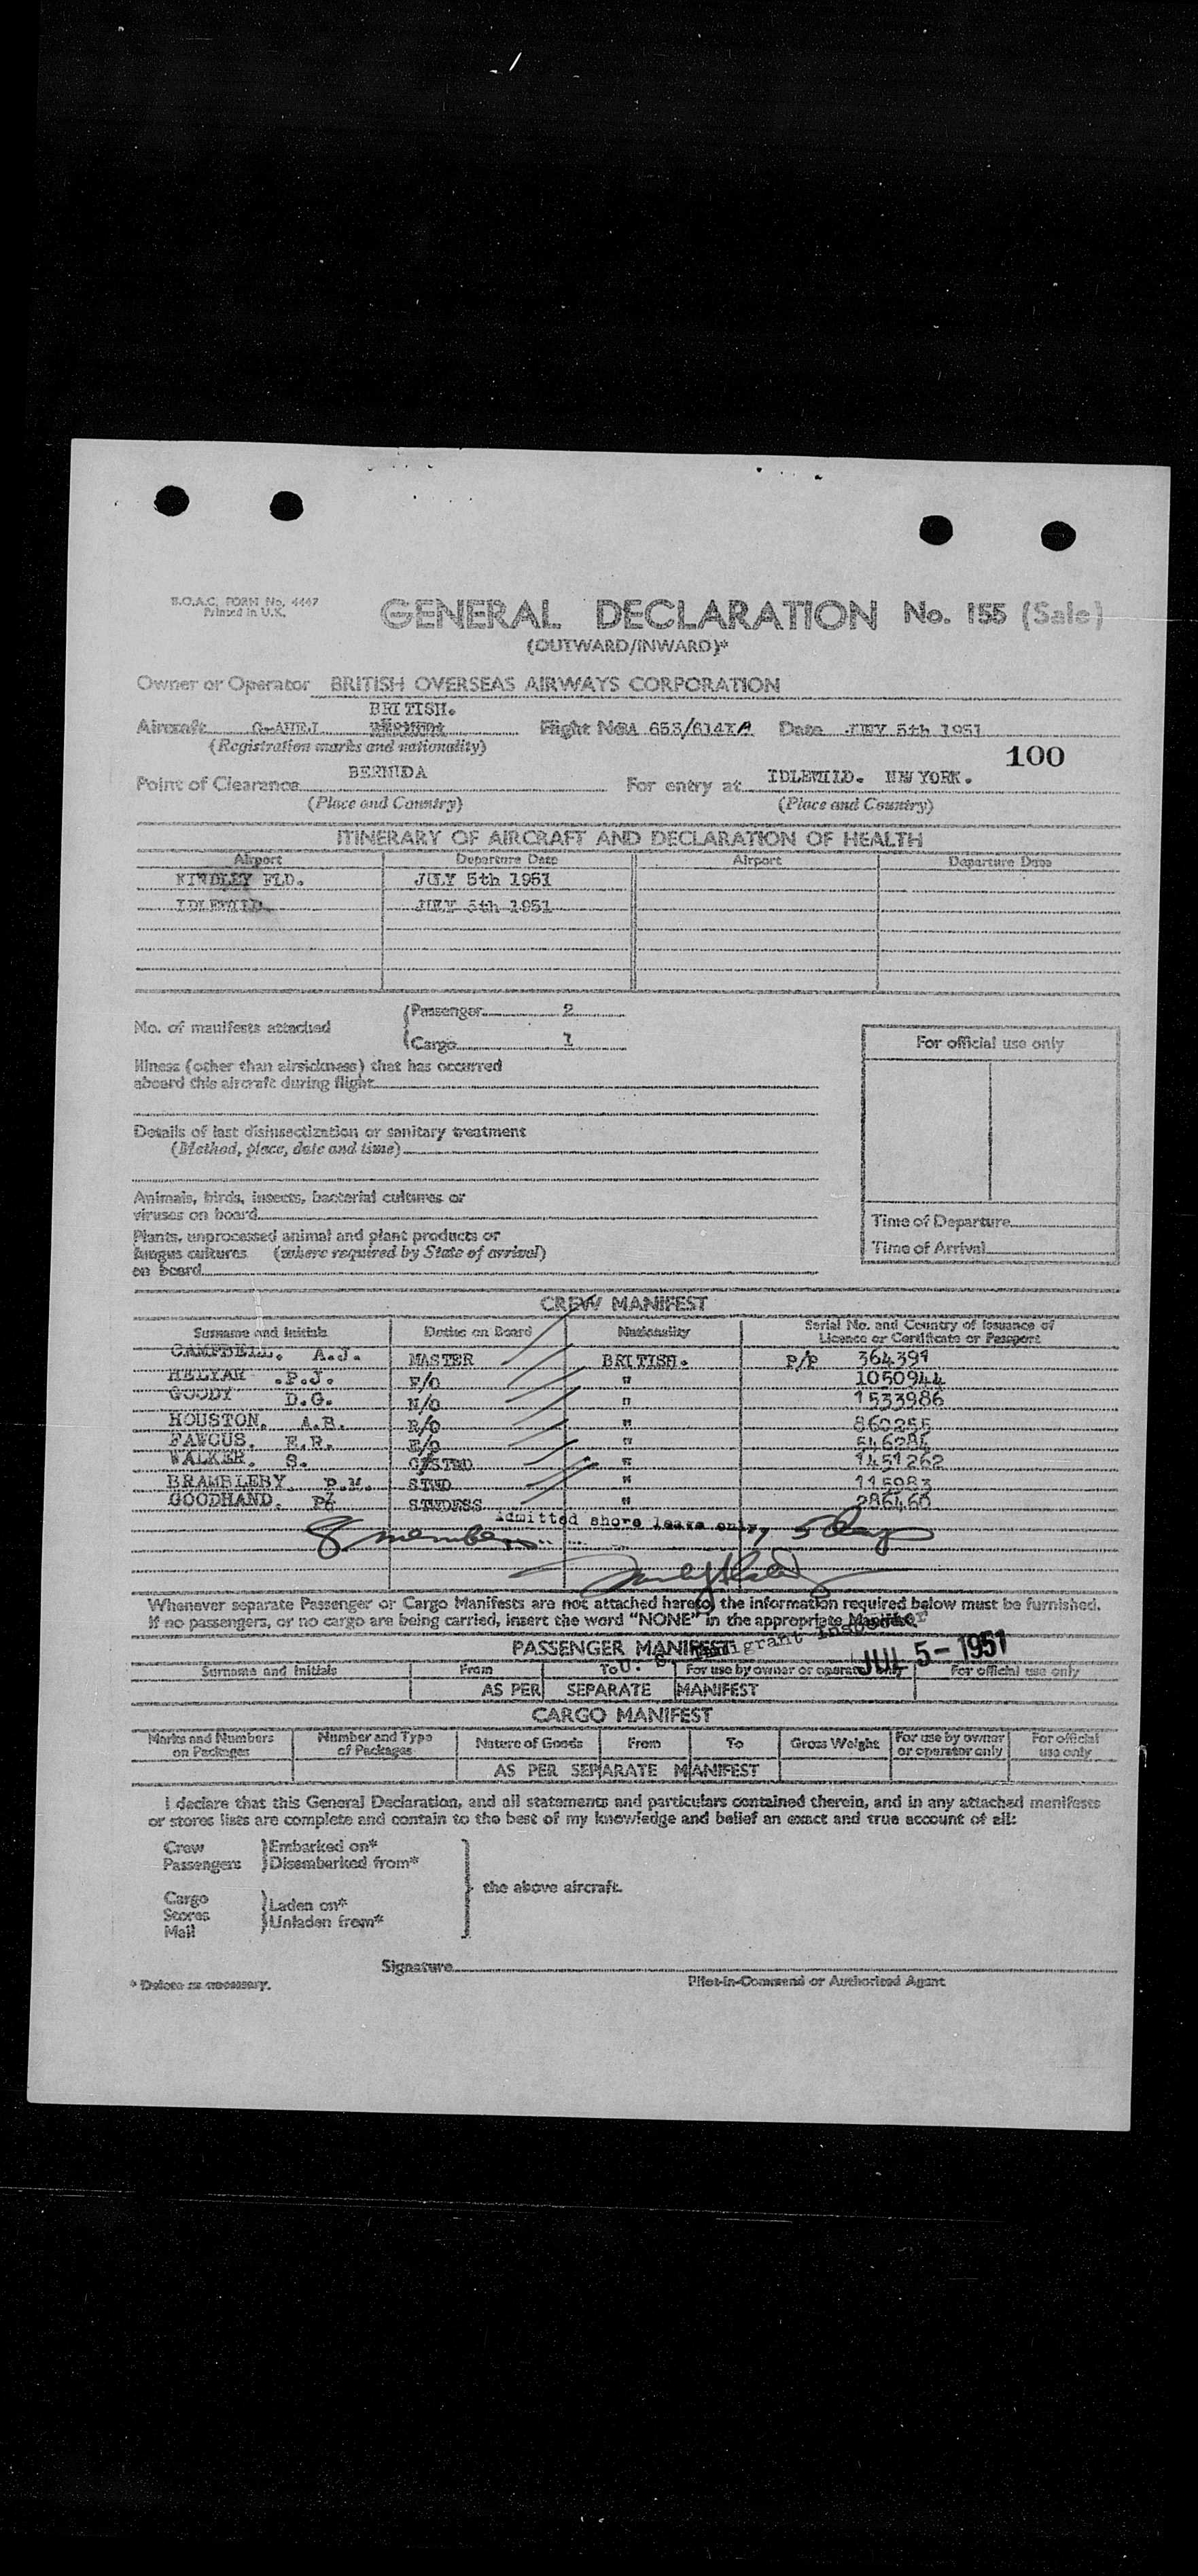 B.O.A.C. FORM No. 4447
Printed in U.K.
GENERAL DECLARATION No. 155 (Sale)
(OUTWARD/INWARD)*
Owner or Operator BRITISH OVERSEAS AIRWAYS CORPORATION
BRITISH.
Aircraft G-AHEJ Flight No. BA 653/614XA Date JULY 5th 1951
(Registration marks and nationality)
100
Point of Clearance BERMUDA For entry at IDLEWILD. NEW YORK.
(Place and Country) (Place and Country)
ITINERARY OF AIRCRAFT AND DECLARATION OF HEALTH
Airport Departure Date Airport Departure Date
KINDLEY FLD. JULY 5th 1951
IDLEWILD JULY 5th 1951
No. of manifests attached
Passenger 2
Cargo 1
For official use only
Illness (other than airsickness) that has occurred
aboard this aircraft during flight
Details of last disinsectization or sanitary treatment
(Method, place, date and time)
Animals, birds, insects, bacterial cultures or
viruses on board
Time of Departure
Plants, unprocessed animal and plant products or
fungus cultures (where required by State of arrival)
on board
Time of Arrival
CREW MANIFEST
Surname and Initials Duties on Board Nationality Serial No. and Country of Issuance of
Licence or Certificate or Passport
CAMPBELL. A.J. MASTER BRITISH. P/P 364391
HELYAR .P.J. F/O " 1050944
GOODY D.G. N/O " 1533986
HOUSTON. A.B. R/O " 860255
FAWCUS. E.R. E/O " 546284
WALKER. S. C/STWD " 1451262
BRAMBLEBY. P.M. STWD " 115983
GOODHAND. P. STWDESS " 286460
8 members Admitted shore leave only, 5 days
Whenever separate Passenger or Cargo Manifests are not attached hereto, the information required below must be furnished.
If no passengers, or no cargo are being carried, insert the word "NONE" in the appropriate Manifest.
U. S. Immigrant Inspector
PASSENGER MANIFEST
JUL 5 - 1951
Surname and Initials From To For use by owner or operator only For official use only
AS PER SEPARATE MANIFEST
CARGO MANIFEST
Marks and Numbers on Packages Number and Type of Packages Nature of Goods From To Gross Weight For use by owner or operator only For official use only
AS PER SEPARATE MANIFEST
I declare that this General Declaration, and all statements and particulars contained therein, and in any attached manifests
or stores lists are complete and contain to the best of my knowledge and belief an exact and true account of all:
Crew Embarked on*
Passengers Disembarked from*
the above aircraft.
Cargo
Stores
Mail
Laden on*
Unladen from*
Signature
* Delete as necessary.
Pilot-in-Command or Authorized Agent